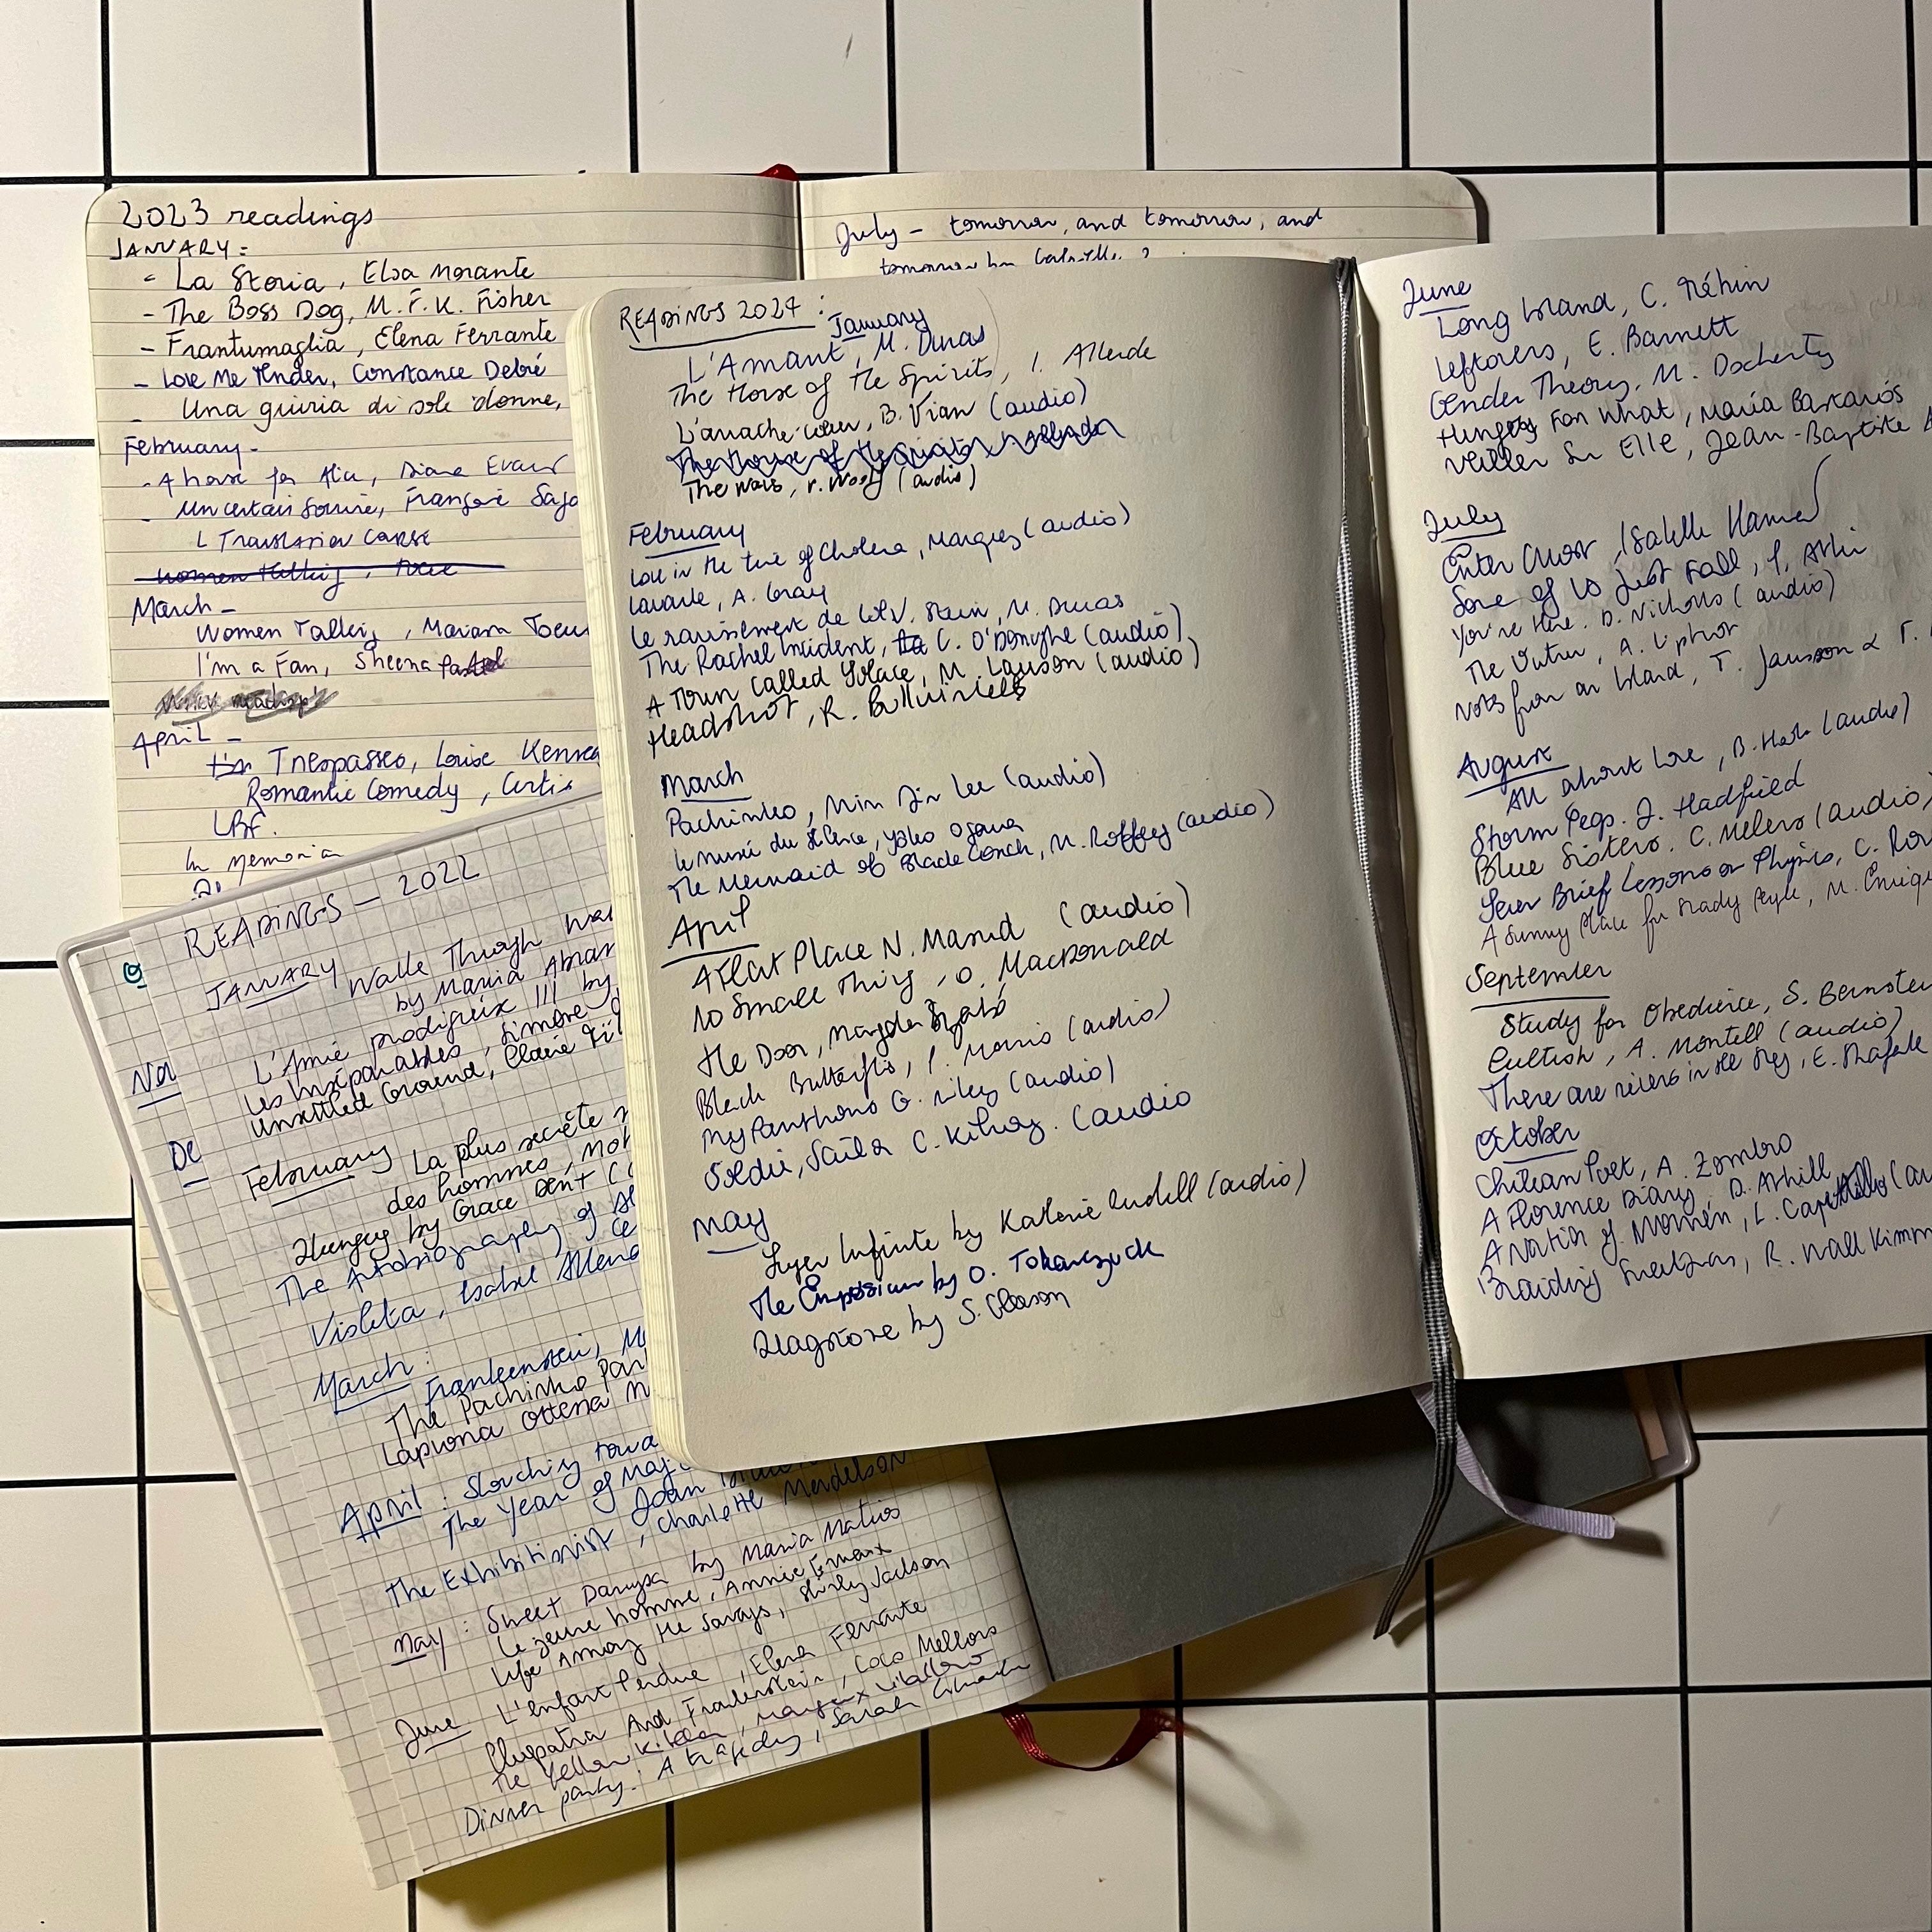 2023 readings
JANUARY:
- La Storia, Elsa Morante
- The Boss Dog, M.F.K. Fisher
- Frantumaglia, Elena Ferrante
- Love Me Tender, Constance Debré
- Una di sole donne,
February -
- A house for Alice, Diana Evans
- Uncertain Françoise Saga
L Translation
Women Talking,
March -
Women Talking,
I'm a Fan, Sheena Patel
April -
Trespasses, Louise Kenne
Romantic Comedy, Curtis
LBF.
In memoria
July - tomorrow, and tomorrow, and
tomorrow by
READINGS 2024:
January
L'Amant, M. Duras
The House of the Spirits, I. Allende
L'arrache-coeur, B. Vian (audio)
The House of the Spirits
The V. Woolf (audio)
February
Love in the time of Cholera, Marquez (audio)
A. Gray
Le ravissement de Lol V. Stein, M. Duras
The Rachel Incident, C. O'Donoghue (audio)
A Town Called Solace, M. Lawson (audio)
Headshot, R. Bullwinkel
March
Pachinko, Min Jin Lee (audio)
Le musée du silence, Yoko Ogawa
The Mermaid of Black Conch, M. Roffey (audio)
April
A Flat Place N. Masud (audio)
No Small Thing, O. MacDonald
The Door, Magda Szabó
Black Butterflies, P. Morris (audio)
My Phantoms G. Riley (audio)
Soldier, Sailor C. Kilroy. (audio
May
by Katherine Rundell (audio)
The Empusium by O. Tokarczuck
by S. Gleeson
June
Long Island, C.
Leftovers, E. Barnett
Gender Theory, M. Docherty
Hungry For What, María Bastarós
Veiller Sur Elle, Jean-Baptiste A
July
Enter Ghost, Isabella Hammad
Some of Us Just Fall, P. Attlee
You're Here. D. Nicholls (audio)
The
Notes from an Island, T. Jansson & T.
August
All about love, B. Hooks (audio)
Storm Pegs. J. Hadfield
Blue Sisters. C. Mellors (audio)
Seven Brief Lessons on Physics, C. Rov
A Sunny Place for Shady People, M. Enriqu
September
Study for Obedience, S. Bernstein
Cultish, A. Montell (audio)
There are rivers in the sky, E. Shafak
October
Chilean Poet, A. Zambra
A Florence Diary, D. Athill
A Nation of Women, L. Capetillo (au
Braiding Sweetgrass, R. Wall Kimm
READINGS - 2022
JANUARY Walk Through Wal
by Marina Abram
L'Amie prodigieuse III by
Les Inséparables, Simone d
Unsettled Ground, Claire Ful
February La plus secrète m
des hommes, Moh
Hungry by Grace Dent (
The Autobiography of Al
Violeta, Isabel Allend
March:
Frankenstein, M
The Pachinko Par
Lapvona Ottessa M
April: Slouching towa
The Year of Magi
Joan
The Exhibitionist, Charlotte Mendelson
May: Sweet Darusya by Maria Matios
Le jeune homme, Annie Ernaux
Life Among the Savages, Shirley Jackson
June L'enfant Perdue, Elena Ferrante
Cleopatra And Frankenstein, Coco Mellors
The Yellow Kitchen, Margaux Vialleron
Dinner party: A tragedy, Sarah Gilmartin
No
De